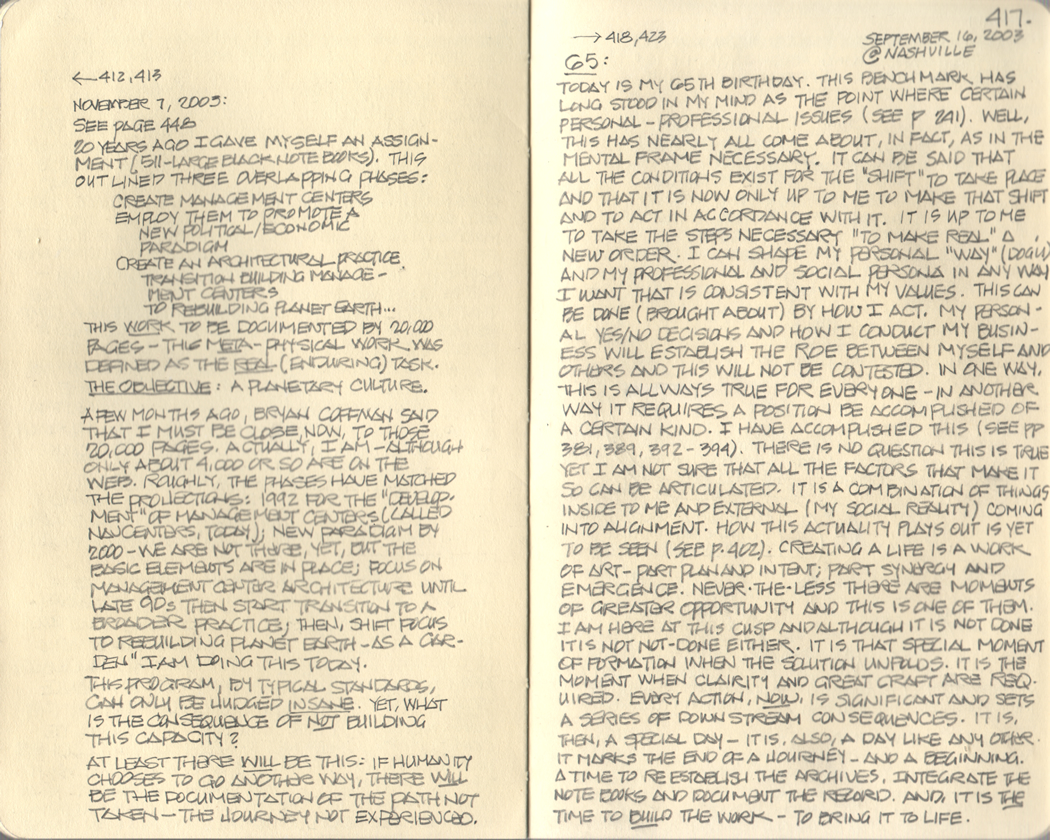 ←412,413
NOVEMBER 7, 2003:
SEE PAGE 448
20 YEARS AGO I GAVE MYSELF AN ASSIGN-
MENT (511-LARGE BLACK NOTE BOOKS). THIS
OUTLINED THREE OVERLAPPING PHASES:
CREATE MANAGEMENT CENTERS
EMPLOY THEM TO PROMOTE A
NEW POLITICAL/ECONOMIC
PARADIGM
CREATE AN ARCHITECTURAL PRACTICE
TRANSITION BUILDING MANAGE-
MENT CENTERS
TO REBUILDING PLANET EARTH...
THIS WORK TO BE DOCUMENTED BY 20,000
PAGES - THIS META-PHYSICAL WORK WAS
DEFINED AS THE REAL (ENDURING) TASK.
THE OBJECTIVE: A PLANETARY CULTURE.
A FEW MONTHS AGO, BRYAN COFFMAN SAID
THAT I MUST BE CLOSE NOW, TO THOSE
20,000 PAGES. ACTUALLY, I AM - ALTHOUGH
ONLY ABOUT 4,000 OR SO ARE ON THE
WEB. ROUGHLY, THE PHASES HAVE MATCHED
THE PROJECTIONS: 1992 FOR THE "DEVELOP-
MENT" OF MANAGEMENT CENTERS (CALLED
NAVCENTERS, TODAY); NEW PARADIGM BY
2000 - WE ARE NOT THERE, YET, BUT THE
BASIC ELEMENTS ARE IN PLACE; FOCUS ON
MANAGEMENT CENTER ARCHITECTURE UNTIL
LATE 90s THEN START TRANSITION TO A
BROADER PRACTICE; THEN, SHIFT FOCUS
TO REBUILDING PLANET EARTH - AS A GAR-
DEN" I AM DOING THIS TODAY.
THIS PROGRAM, BY TYPICAL STANDARDS,
CAN ONLY BE JUDGED INSANE. YET, WHAT
IS THE CONSEQUENCE OF NOT BUILDING
THIS CAPACITY?
AT LEAST THERE WILL BE THIS: IF HUMANITY
CHOOSES TO GO ANOTHER WAY, THERE WILL
BE THE DOCUMENTATION OF THE PATH NOT
TAKEN - THE JOURNEY NOT EXPERIENCED.
417.
→418,423
SEPTEMBER 16, 2003
@ NASHVILLE
65:
TODAY IS MY 65TH BIRTHDAY. THIS BENCH MARK HAS
LONG STOOD IN MY MIND AS THE POINT WHERE CERTAIN
PERSONAL-PROFESSIONAL ISSUES (SEE P 241). WELL,
THIS HAS NEARLY ALL COME ABOUT, IN FACT, AS IN THE
MENTAL FRAME NECESSARY. IT CAN BE SAID THAT
ALL THE CONDITIONS EXIST FOR THE "SHIFT" TO TAKE PLACE
AND THAT IT IS NOW ONLY UP TO ME TO MAKE THAT SHIFT
AND TO ACT IN ACCORDANCE WITH IT. IT IS UP TO ME
TO TAKE THE STEPS NECESSARY "TO MAKE REAL" A
NEW ORDER. I CAN SHAPE MY PERSONAL "WAY"
AND MY PROFESSIONAL AND SOCIAL PERSONA IN ANY WAY
I WANT THAT IS CONSISTENT WITH MY VALUES. THIS CAN
BE DONE (BROUGHT ABOUT) BY HOW I ACT. MY PERSON-
AL YES/NO DECISIONS AND HOW I CONDUCT MY BUSIN-
ESS WILL ESTABLISH THE ROE BETWEEN MYSELF AND
OTHERS AND THIS WILL NOT BE CONTESTED. IN ONE WAY,
THIS IS ALLWAYS TRUE FOR EVERYONE - IN ANOTHER
WAY IT REQUIRES A POSITION BE ACCOMPLISHED OF
A CERTAIN KIND. I HAVE ACCOMPLISHED THIS (SEE PP
381, 389, 392-394). THERE IS NO QUESTION THIS IS TRUE
YET I AM NOT SURE THAT ALL THE FACTORS THAT MAKE IT
SO CAN BE ARTICULATED. IT IS A COMBINATION OF THINGS
INSIDE TO ME AND EXTERNAL (MY SOCIAL REALITY) COMING
INTO ALIGNMENT. HOW THIS ACTUALITY PLAYS OUT IS YET
TO BE SEEN (SEE P. 402). CREATING A LIFE IS A WORK
OF ART - PART PLAN AND INTENT; PART SYNERGY AND
EMERGENCE. NEVER-THE-LESS THERE ARE MOMENTS
OF GREATER OPPORTUNITY AND THIS IS ONE OF THEM.
I AM HERE AT THIS CUSP AND ALTHOUGH IT IS NOT DONE
IT IS NOT NOT-DONE EITHER. IT IS THAT SPECIAL MOMENT
OF FORMATION WHEN THE SOLUTION UNFOLDS. IT IS THE
MOMENT WHEN CLAIRITY AND GREAT CRAFT ARE REQ-
UIRED. EVERY ACTION, NOW, IS SIGNIFICANT AND SETS
A SERIES OF DOWN STREAM CONSEQUENCES. IT IS,
THEN, A SPECIAL DAY - IT IS, ALSO, A DAY LIKE ANY OTHER.
IT MARKS THE END OF A JOURNEY - AND A BEGINNING.
A TIME TO REESTABLISH THE ARCHIVES, INTEGRATE THE
NOTE BOOKS AND DOCUMENT THE RECORD. AND, IT IS THE
TIME TO BUILD THE WORK - TO BRING IT TO LIFE.